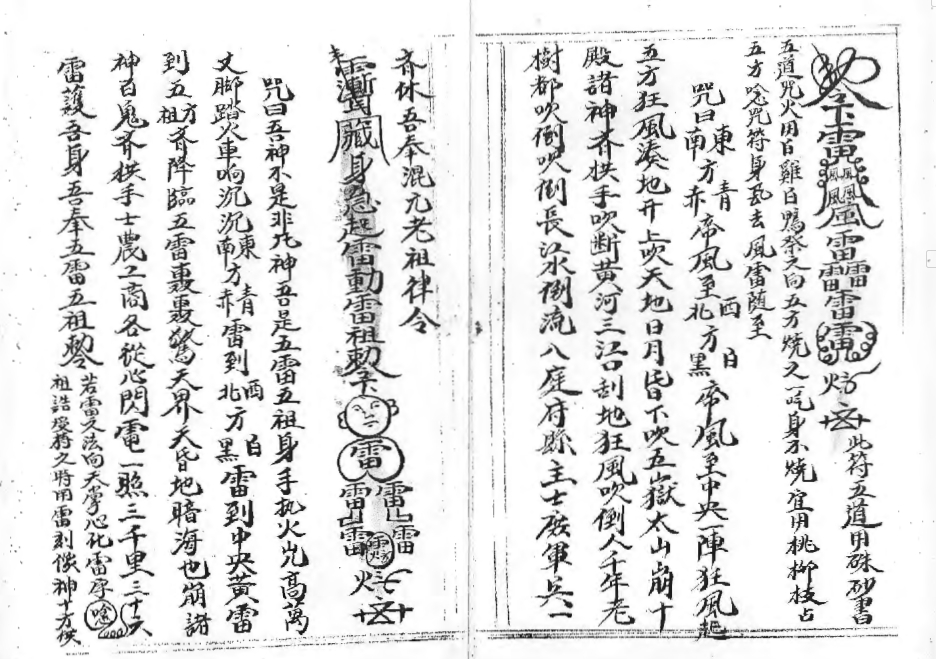 此符五道用硃砂書
五道咒火用白雞白鴨祭之向五方燒之一吃身不燒宜用桃柳枝占
五方唸咒符身瓦去風雷随至
咒曰東南方青赤帝風至西北方白黑帝風至中央一陣狂風起
五方狂風湊地开上吹天地日月昏下吹五嶽太山崩十
殿諸神齐拱手吹断黄河三江口刮地狂風吹倒人千年老
樹都吹倒吹倒長江水倒流八庭府縣主士廠軍兵一
齐休吾奉混元老祖律令
藏身急起雷動雷祖勅令
咒曰吾神不是非凡神吾是五雷五祖身手执火光高萬
丈脚踏火車响沉沉東南方青赤雷到西北方白黑雷到中央黄雷
到五方五祖齐降臨五雷轟轟驚天界天昏地暗海也崩諸
神百鬼齐拱手士農工商各從心閃電一照三千里三十六
雷護吾身吾奉五雷五祖勅令
若雷之法向天掌心化雷序
祖誥變将之時用雷刻像神十方供